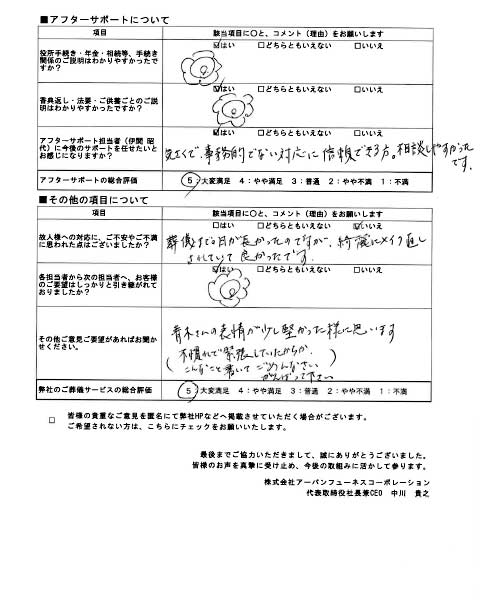 ■アフターサポートについて
項目
該当項目に○と、コメント（理由）をお願いします
役所手続き・年金・相続等、手続き
関係のご説明はわかりやすかったで
すか？
☑はい □どちらともいえない □いいえ
香典返し・法要・ご供養ごとのご説
明はわかりやすかったですか？
☑はい □どちらともいえない □いいえ
アフターサポート担当者（伊関 昭
代）に今後のサポートを任せたいと
お感じになりますか？
☑はい □どちらともいえない □いいえ
気さくで、事務的でない対応に信頼できる方。相談しやすかった
です。
アフターサポートの総合評価
5：大変満足 4：やや満足 3：普通 2：やや不満 1：不満
■その他の項目について
項目
該当項目に○と、コメント（理由）をお願いします
故人様への対応に、ご不安やご不満
に思われた点はございましたか？
□はい □どちらともいえない ☑いいえ
葬儀まで日が長かったのですが、綺麗にメイク直し
されていて良かったです。
各担当者から次の担当者へ、お客様
のご要望はしっかりと引き継がれて
おりましたか？
☑はい □どちらともいえない □いいえ
その他ご意見ご要望があればお聞か
せください。
青木さんの表情が少し堅かった様に思います
（不慣れで緊張していたからか、
こんなこと書いてごめんなさい
がんばって下さい）
弊社のご葬儀サービスの総合評価
5：大変満足 4：やや満足 3：普通 2：やや不満 1：不満
□ 皆様の貴重なご意見を匿名にて弊社HPなどへ掲載させていただく場合がございます。
ご希望されない方は、こちらにチェックをお願いいたします。
最後までご協力いただきまして、誠にありがとうございました。
皆様のお声を真摯に受け止め、今後の取組みに活かして参ります。
株式会社アーバンフューネスコーポレーション
代表取締役社長兼CEO 中川 貴之